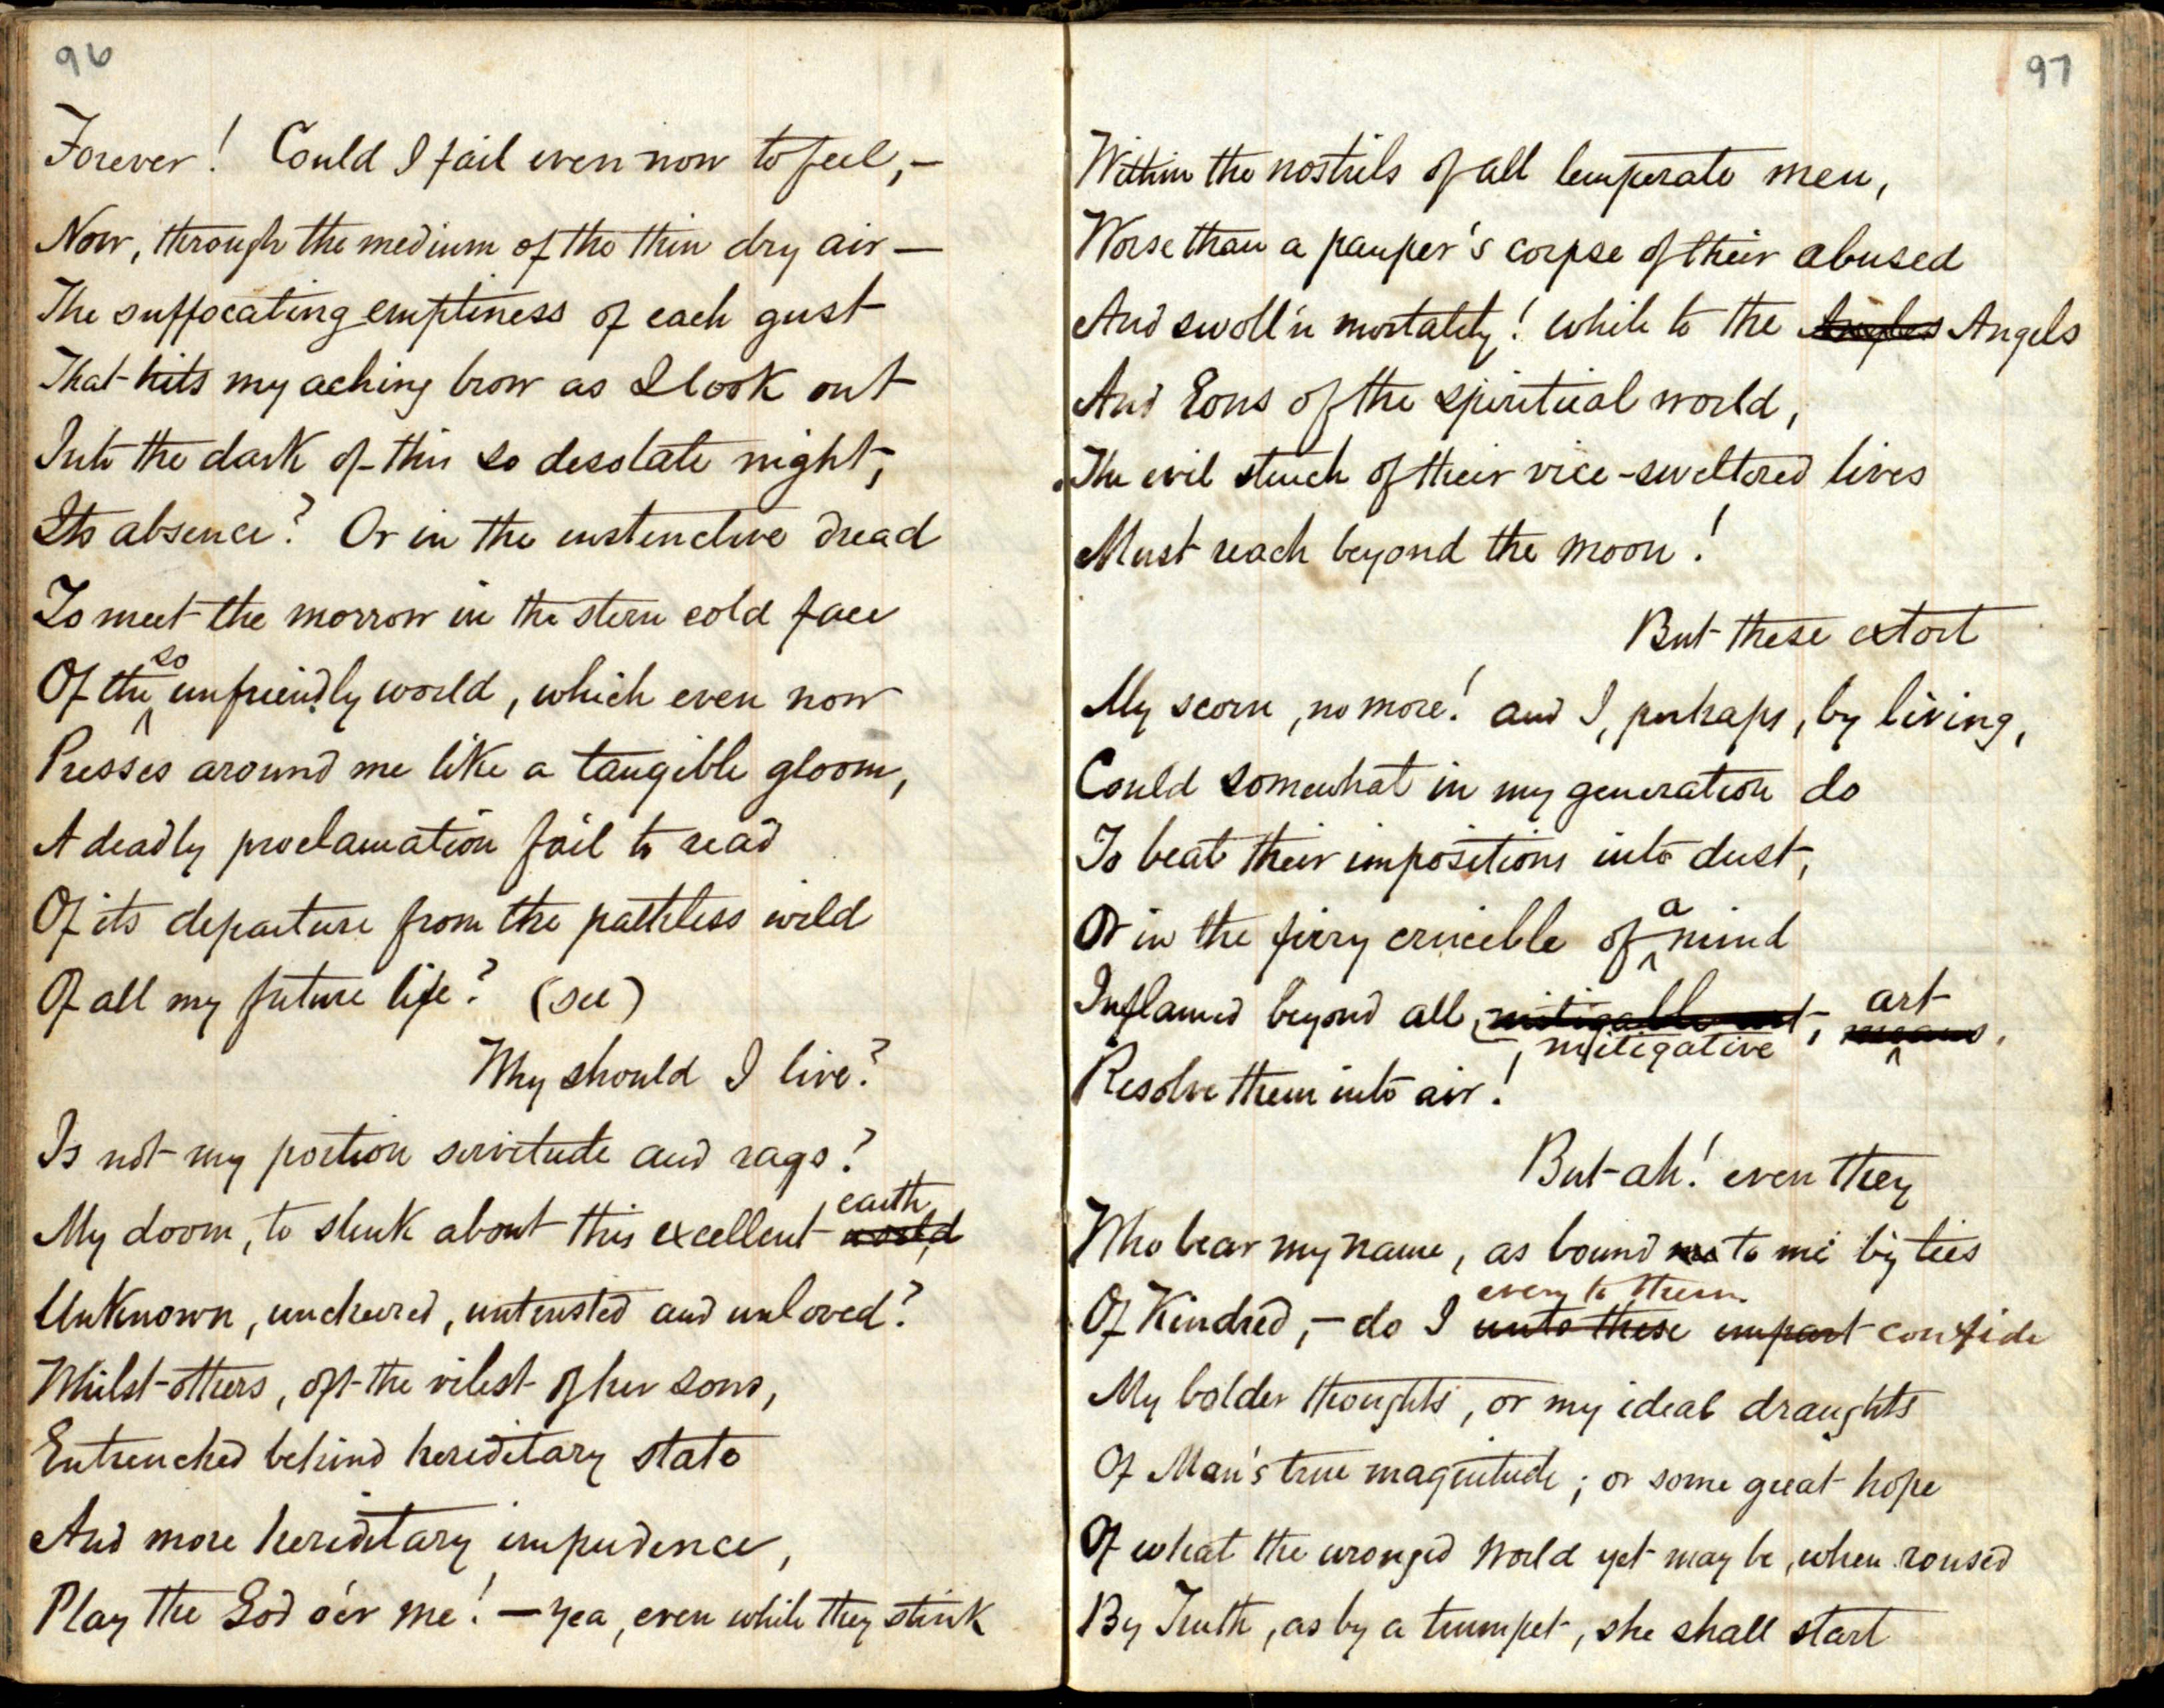 96
Forever! Could I fail even now to feel,—
Now, through the medium of the thin dry air—
The suffocating emptiness of each gust
That hits my aching brow as I look out
Into the dark of this so desolate night,
Its absence? Or in the instinctive dread
To meet the morrow in the stern cold face
so
Of the unfriendly world, which even now
Presses around me like a tangible gloom,
A deadly proclamation fail to read
Of its departure from the pathless wild
Of all my future life? (see)
Why should I live?
Is not my portion servitude and rags?
earth
My doom, to slink about this excellent world
Unknown, uncheered, untrusted and unloved?
Whilst others, oft the vilest of her sons,
Entrenched behind hereditary state
And more hereditary impudence,
Play the God o'er me! — yea, even while they stink
97
Within the nostrils of all temperate men,
Worse than a pauper's corpse of their abused
And swoll'n mortality! while to the Angles Angels
And Eons of the spiritual world,
The evil stench of their vice-sweltered lives
Must reach beyond the moon!
But these extort
My scorn, no more! and I, perhaps, by living,
Could somewhat in my generation do
To beat their impositions into dust,
a
Or in the fiery crucible of mind
art
Inflamed beyond all mitigable art, means,
mitigative
Resolve them into air!
But ah! even they
Who bear my name, as bound me to me by ties
even to them
Of Kindred,— do I unto these impart confide
My bolder thoughts, or my ideal draughts
Of Man's true magnitude; or some great hope
Of what the wronged world yet may be, when roused
By Truth, as by a trumpet, she shall start